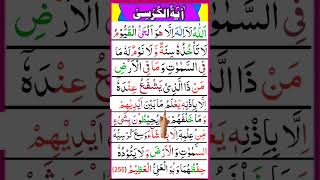 اٰيَةُ الْكُرْسِىْ
اَللّٰهُ لَاۤ اِلٰهَ اِلَّا هُوَ اَلْحَىُّ الْقَيُّوْمُ
لَا تَاْخُذُهٗ سِنَةٌ وَّلَا نَوْمٌ لَهٗ مَا
فِى السَّمٰوٰتِ وَمَا فِى الْاَرْضِ
مَنْ ذَا الَّذِىْ يَشْفَعُ عِنْدَهٗ
اِلَّا بِاِذْنِهٖ يَعْلَمُ مَا بَيْنَ اَيْدِيْهِمْ
وَمَا خَلْفَهُمْ يُحِيْطُوْنَ بِشَىْءٍ
مِّنْ عِلْمِهٖۤ اِلَّا شَآءَ وَسِعَ كُرْسِيُّهُ
السَّمٰوٰتِ وَالْاَرْضَ وَلَا يَئُوْدُهٗ
حِفْظُهُمَا وَهُوَ الْعَلِىُّ الْعَظِيْمُ (255)